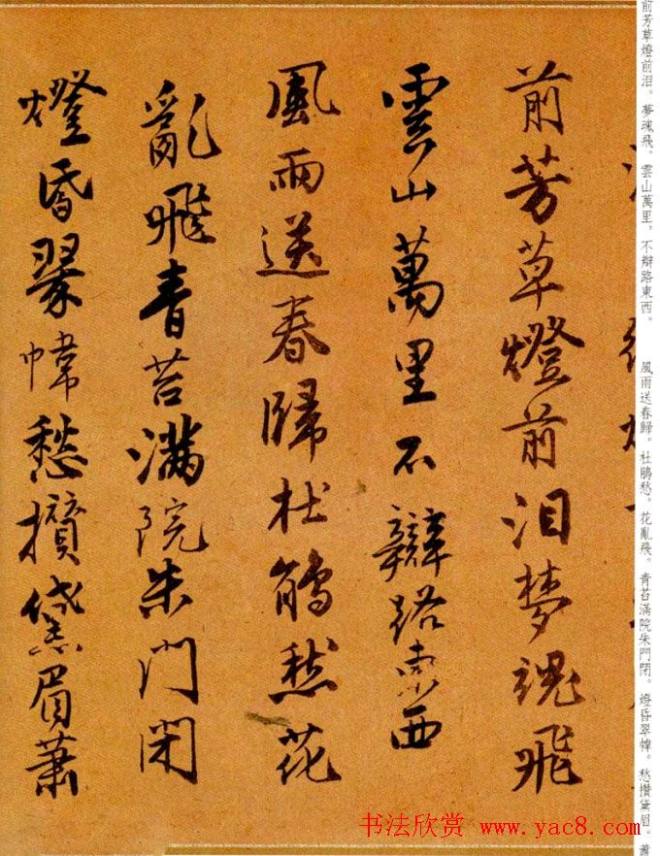 前芳草燈前泪。夢魂飛。雲山萬里。不辯路東西。 風雨送春歸。杜鵑愁。花亂飛。青苔滿院朱門閉。燈昏翠幃。愁攢黛眉。蕭
前芳草燈前泪夢魂飛
雲山萬里不辯路東西
風雨送春歸杜鵑愁花
亂飛青苔滿院朱門閉
燈昏翠幃愁攢黛眉蕭
书法欣赏 www.yac8.com